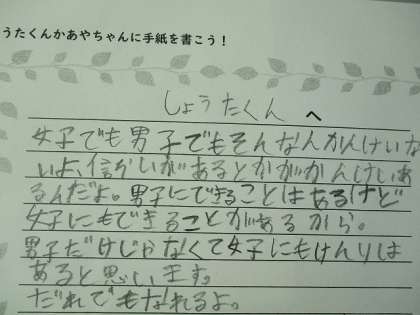 うたくんかあやちゃんに手紙を書こう!
しょうたくん へ
女子でも男子でもそんなんかんけいな
いよ、信かしいがあるとかがかんけいあ
るんだよ。男子にできることはあるけど
女子にもできることがあるから。
男子だけじゃなくて女子にもけんりは
あると思います。
だれでもなれるよ。